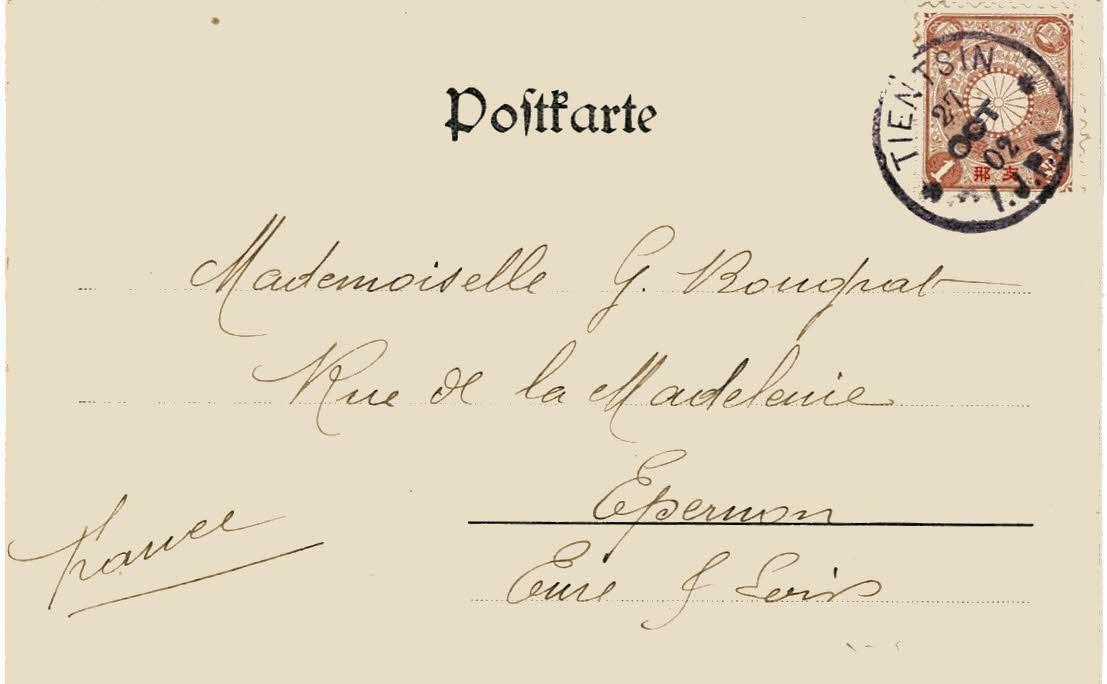 Postkarte
TIENTSIN
27
OCT
02
I.J.P.A
1
支那
Mademoiselle G. Rougrat
Rue de la Madeleine
Epernon
Eure & Loir
France